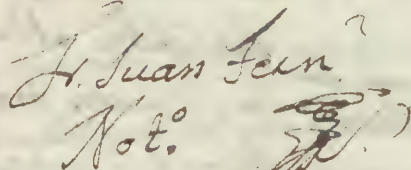 Fr. Juan Fern
Not.º